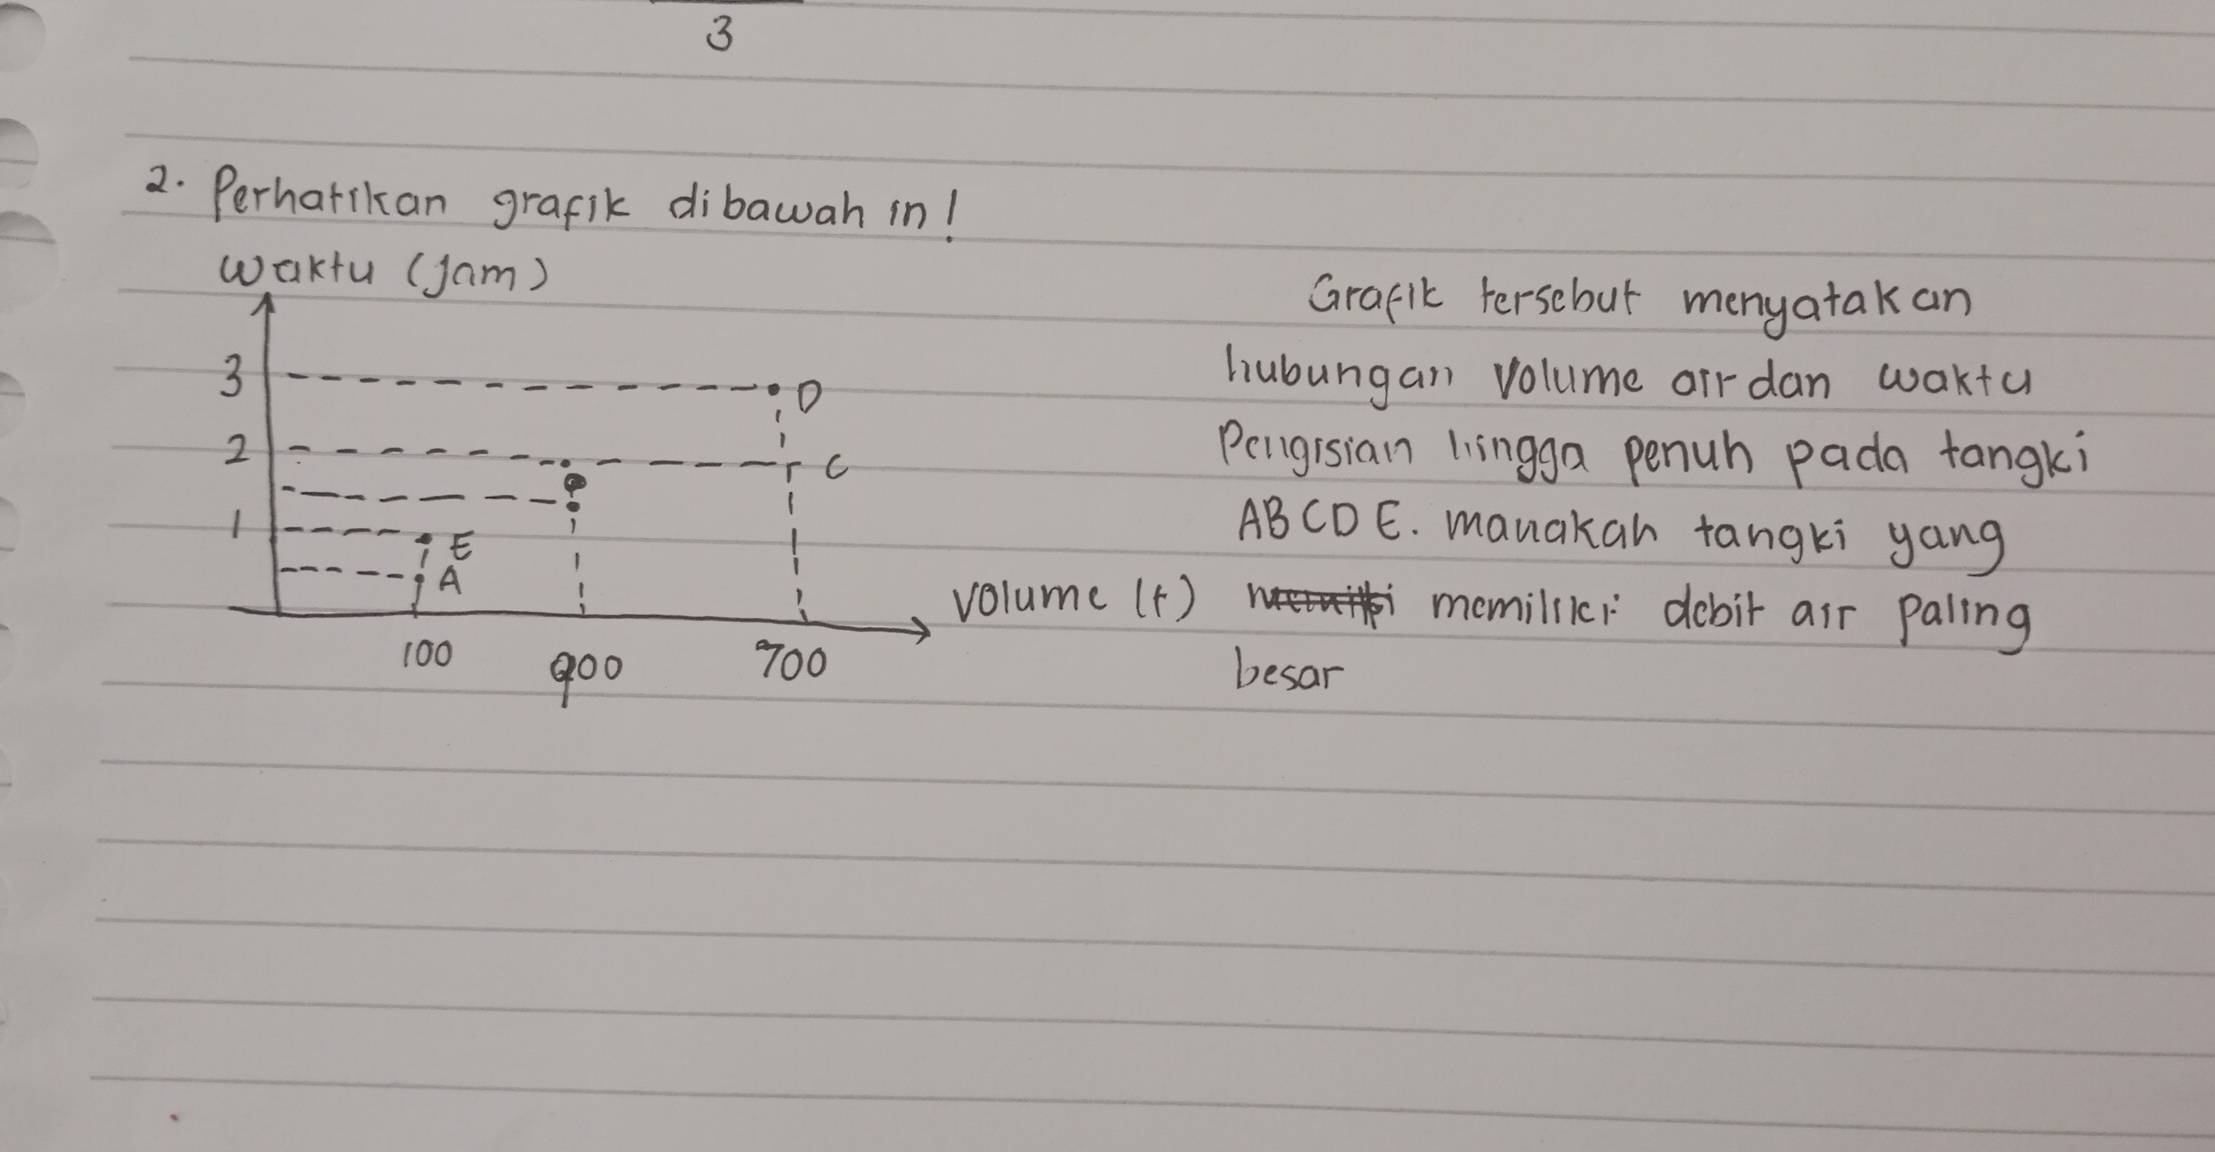 3
2. Perhatikan grafik dibawah in!
Waktu (jam)
3
D
2
C
1
E
A
volume (t)
100
900
700
Grafik tersebut menyatakan
hubungan volume air dan waktu
Pengisian hingga penuh pada tangki
ABCDE. manakah tangki yang
memiliki debit air paling
besar